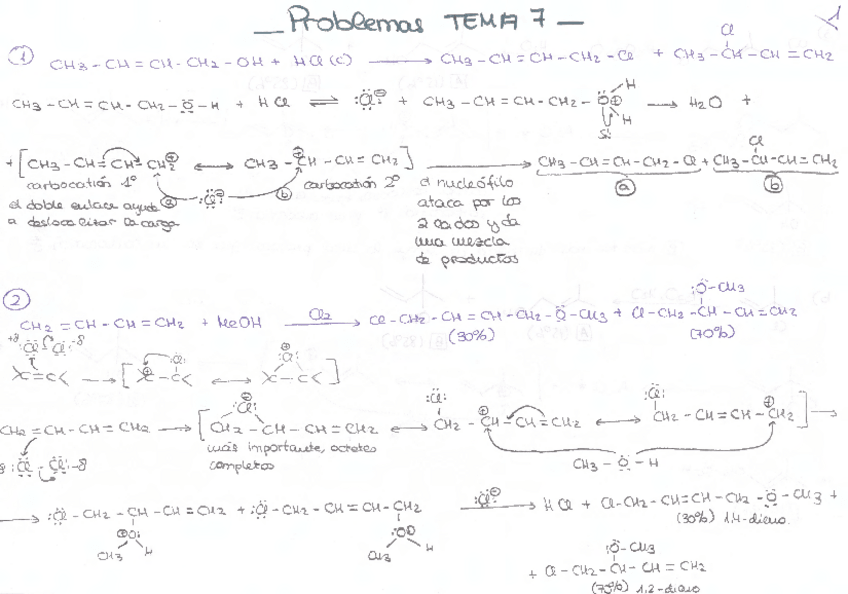 Problemas TEMA 7
1
① CH3-CH=CH-CH2-OH + HCl (c) → CH3-CH=CH-CH2-Cl + CH3-CH(Cl)-CH=CH2
CH3-CH=CH-CH2-Ö-H + HCl ⇌ :Cl:⊖ + CH3-CH=CH-CH2-O⊕(H)(H) → H2O +
+ [CH3-CH=CH-CH2⊕ ↔ CH3-CH⊕-CH=CH2] → CH3-CH=CH-CH2-Cl + CH3-CH(Cl)-CH=CH2
carbocatión 1º
:Cl:⊖
carbocatión 2º
ⓐ ⓑ
ⓐ ⓑ
el doble enlace ayuda
a deslocalizar la carga
el nucleófilo
ataca por los
2 lados y da
una mezcla
de productos
②
CH2=CH-CH=CH2 + MeOH Cl2→ Cl-CH2-CH=CH-CH2-Ö-CH3 + Cl-CH2-CH(:Ö-CH3)-CH=CH2
(30%) (70%)
CH2=CH-CH=CH2 → [CH2-CH-CH=CH2 ↔ CH2-CH⊕-CH=CH2 ↔ CH2-CH=CH-CH2⊕] →
más importante, octetos
completos
CH3-Ö-H
→ :Cl-CH2-CH-CH=CH2 + :Cl-CH2-CH=CH-CH2 :Cl:⊖→ HCl + Cl-CH2-CH=CH-CH2-Ö-CH3 +
CH3 H CH3 H
(30%) 1,4-dieno
+ Cl-CH2-CH(:Ö-CH3)-CH=CH2
(70%) 1,2-dieno